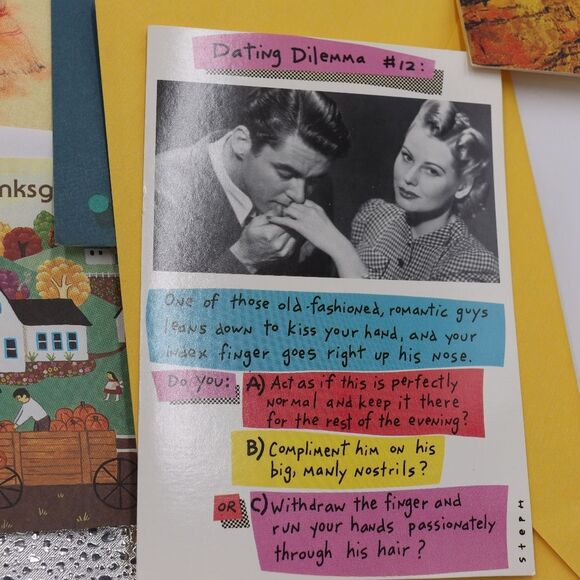 Dating Dilemma #12:
One of those old-fashioned, romantic guys
leans down to kiss your hand, and your
index finger goes right up his nose.
Do you:
A) Act as if this is perfectly
normal and keep it there
for the rest of the evening?
B) Compliment him on his
big, manly nostrils?
OR
C) Withdraw the finger and
run your hands passionately
through his hair?
STEPH
nksg